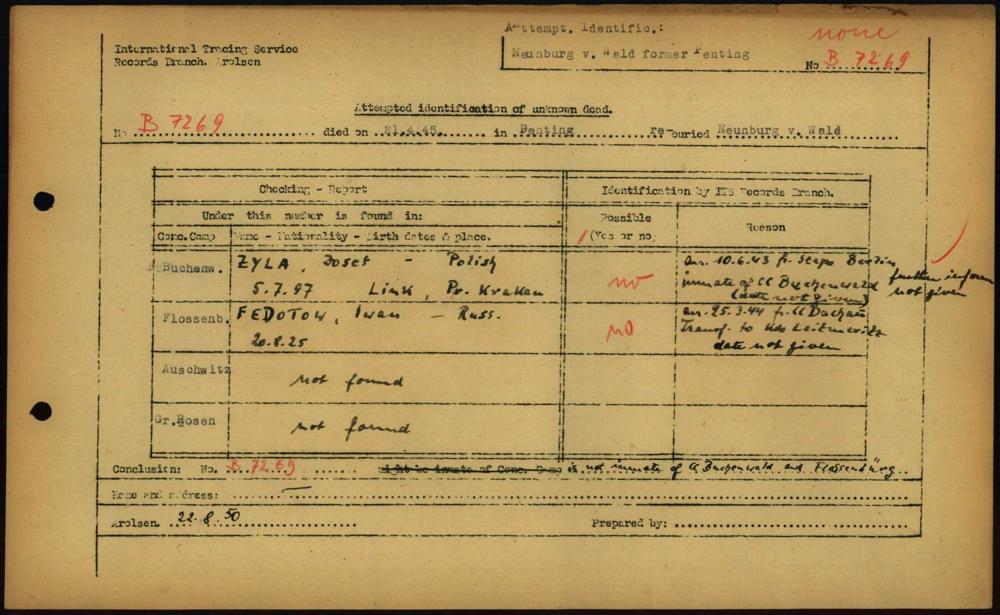 Attempt. Identific.:
none
International Tracing Service
Records Branch. Arolsen
Neunburg v. Wald former Penting
No B 7269
Attempted identification of unknown dead.
No B 7269 died on 21.4.45. in Penting re-buried Neunburg v. Wald
Checking - Report
Identification by ITS Records Branch.
Under this number is found in:
Possible
(Yes or no)
Reason
Conc.Camp
Name - Nationality - Birth dates & place.
Buchenw.
ZYLA, Josef - Polish
5.7.97 Link, Pr. Krakau
no
arr. 10.6.43 fr. Stapo Berlin
inmate of CC Buchenwald
(date not given)
further inform
not given
Flossenb.
FEDOTOW, Iwan - Russ.
20.8.25
no
arr. 25.3.44 fr. CC Dachau
Transf. to Kdo Leitmeritz
date not given
Auschwitz
not found
Gr.Rosen
not found
Conclusion: No. B 7269 might be inmate of Conc. Camp is not inmate of CC Buchenwald and Flossenbürg
Name and address:
Arolsen 22.8.50
Prepared by: